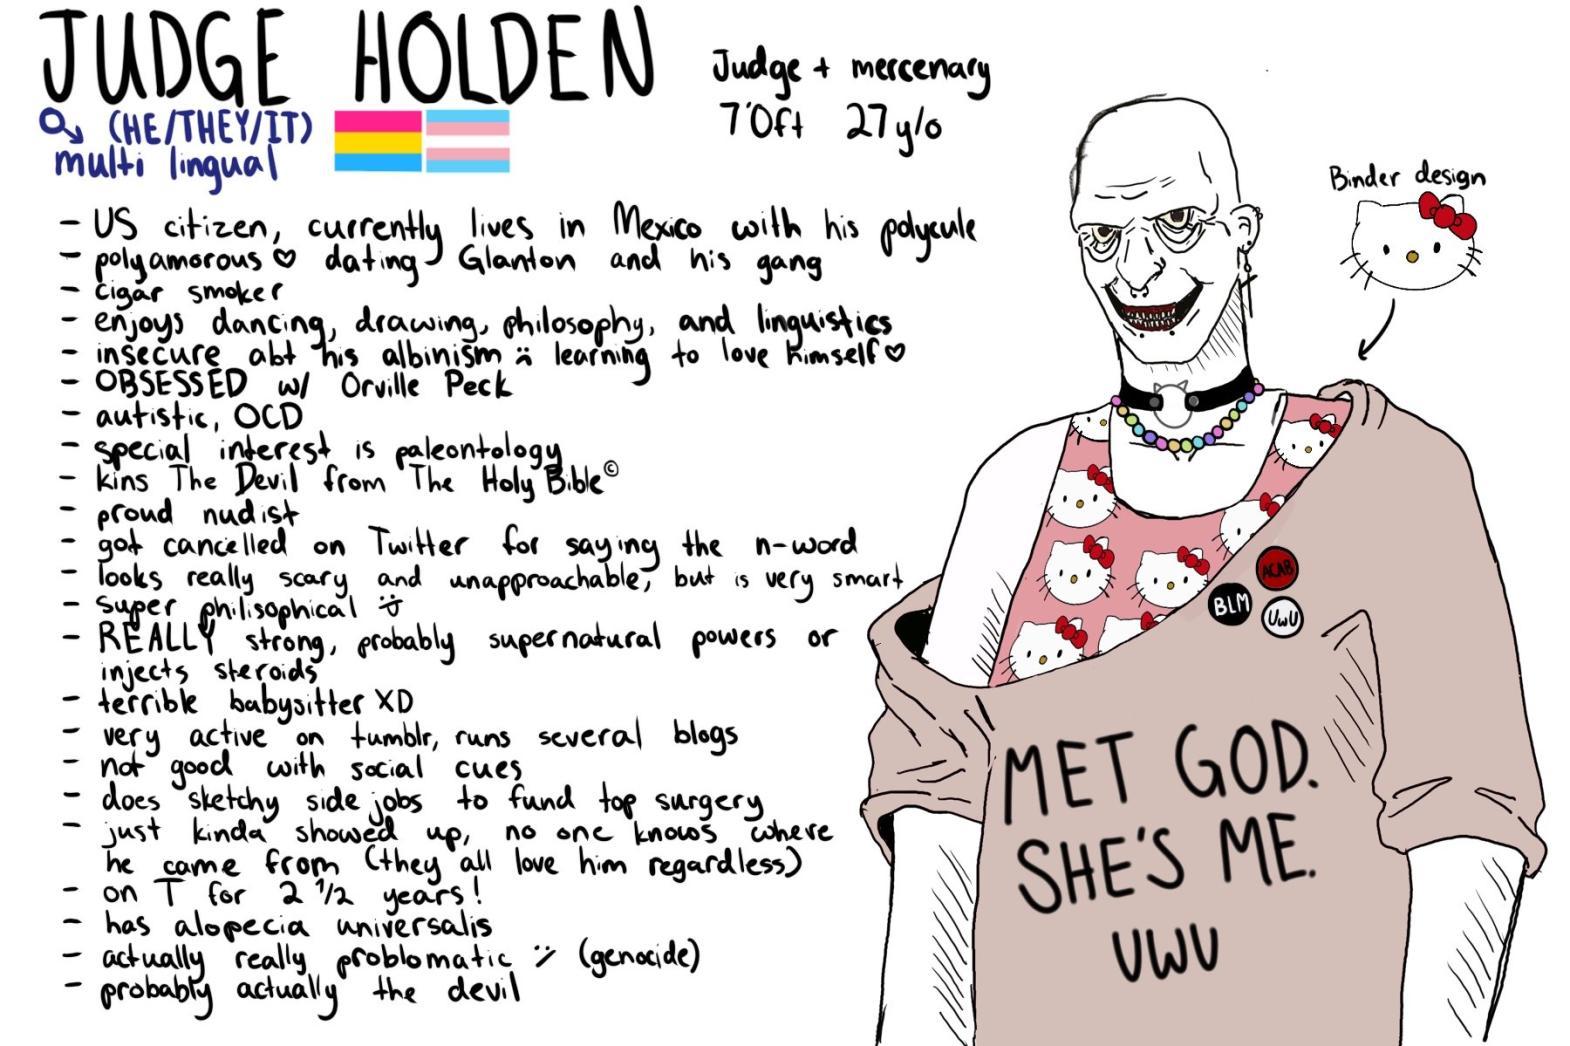 JUDGE HOLDEN
(HE/THEY/IT)
multi lingual
Judge + mercenary
7'0ft 27 y/o
- US citizen, currently lives in Mexico with his polycule
- polyamorous ♡ dating Glanton and his gang
- cigar smoker
- enjoys dancing, drawing, philosophy, and linguistics
- insecure abt his albinism :( learning to love himself ♡
- OBSESSED w/ Orville Peck
- autistic, OCD
- special interest is paleontology
- kins The Devil from The Holy Bible©
- proud nudist
- got cancelled on Twitter for saying the n-word
- looks really scary and unapproachable, but is very smart
- super philisophical :)
- REALLY strong, probably supernatural powers or
injects steroids
- terrible babysitter XD
- very active on tumblr, runs several blogs
- not good with social cues
- does sketchy side jobs to fund top surgery
- just kinda showed up, no one knows where
he came from (they all love him regardless)
- on T for 2 1/2 years!
- has alopecia universalis
- actually really problomatic :/ (genocide)
- probably actually the devil
Binder design
ACAB
BLM
UwU
MET GOD.
SHE'S ME.
UWU